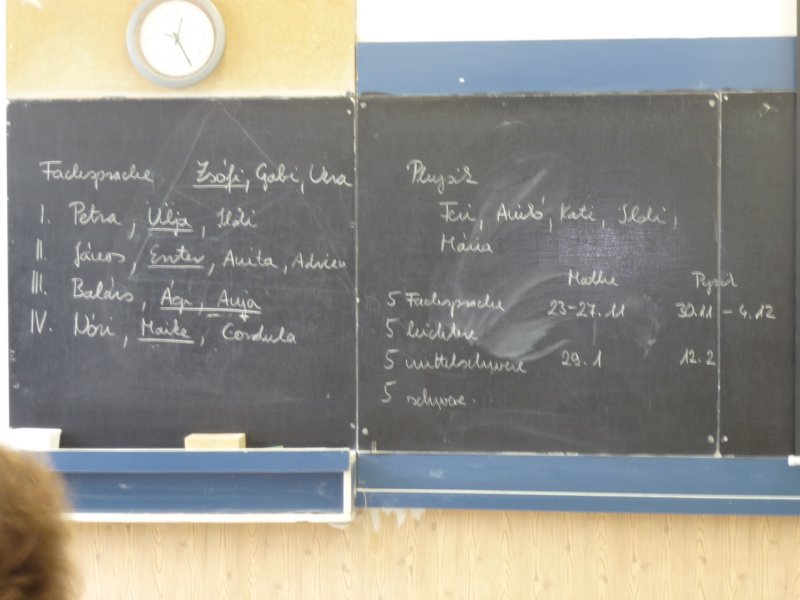 Fachsprache Zsófi, Gabi, Vera
I. Petra, Ilja, Ildi
II. János, Eszter, Anita, Adrien
III. Balázs, Ági, Anja
IV. Nóri, Maike, Cordula
Physik
Feri, Anikó, Kati, Ildi,
Mária
Mathe Physik
5 Fachsprache 23-27.11 30.11 - 4.12
5 leichtere
5 mittelschwere 29.1 12.2
5 schwere...